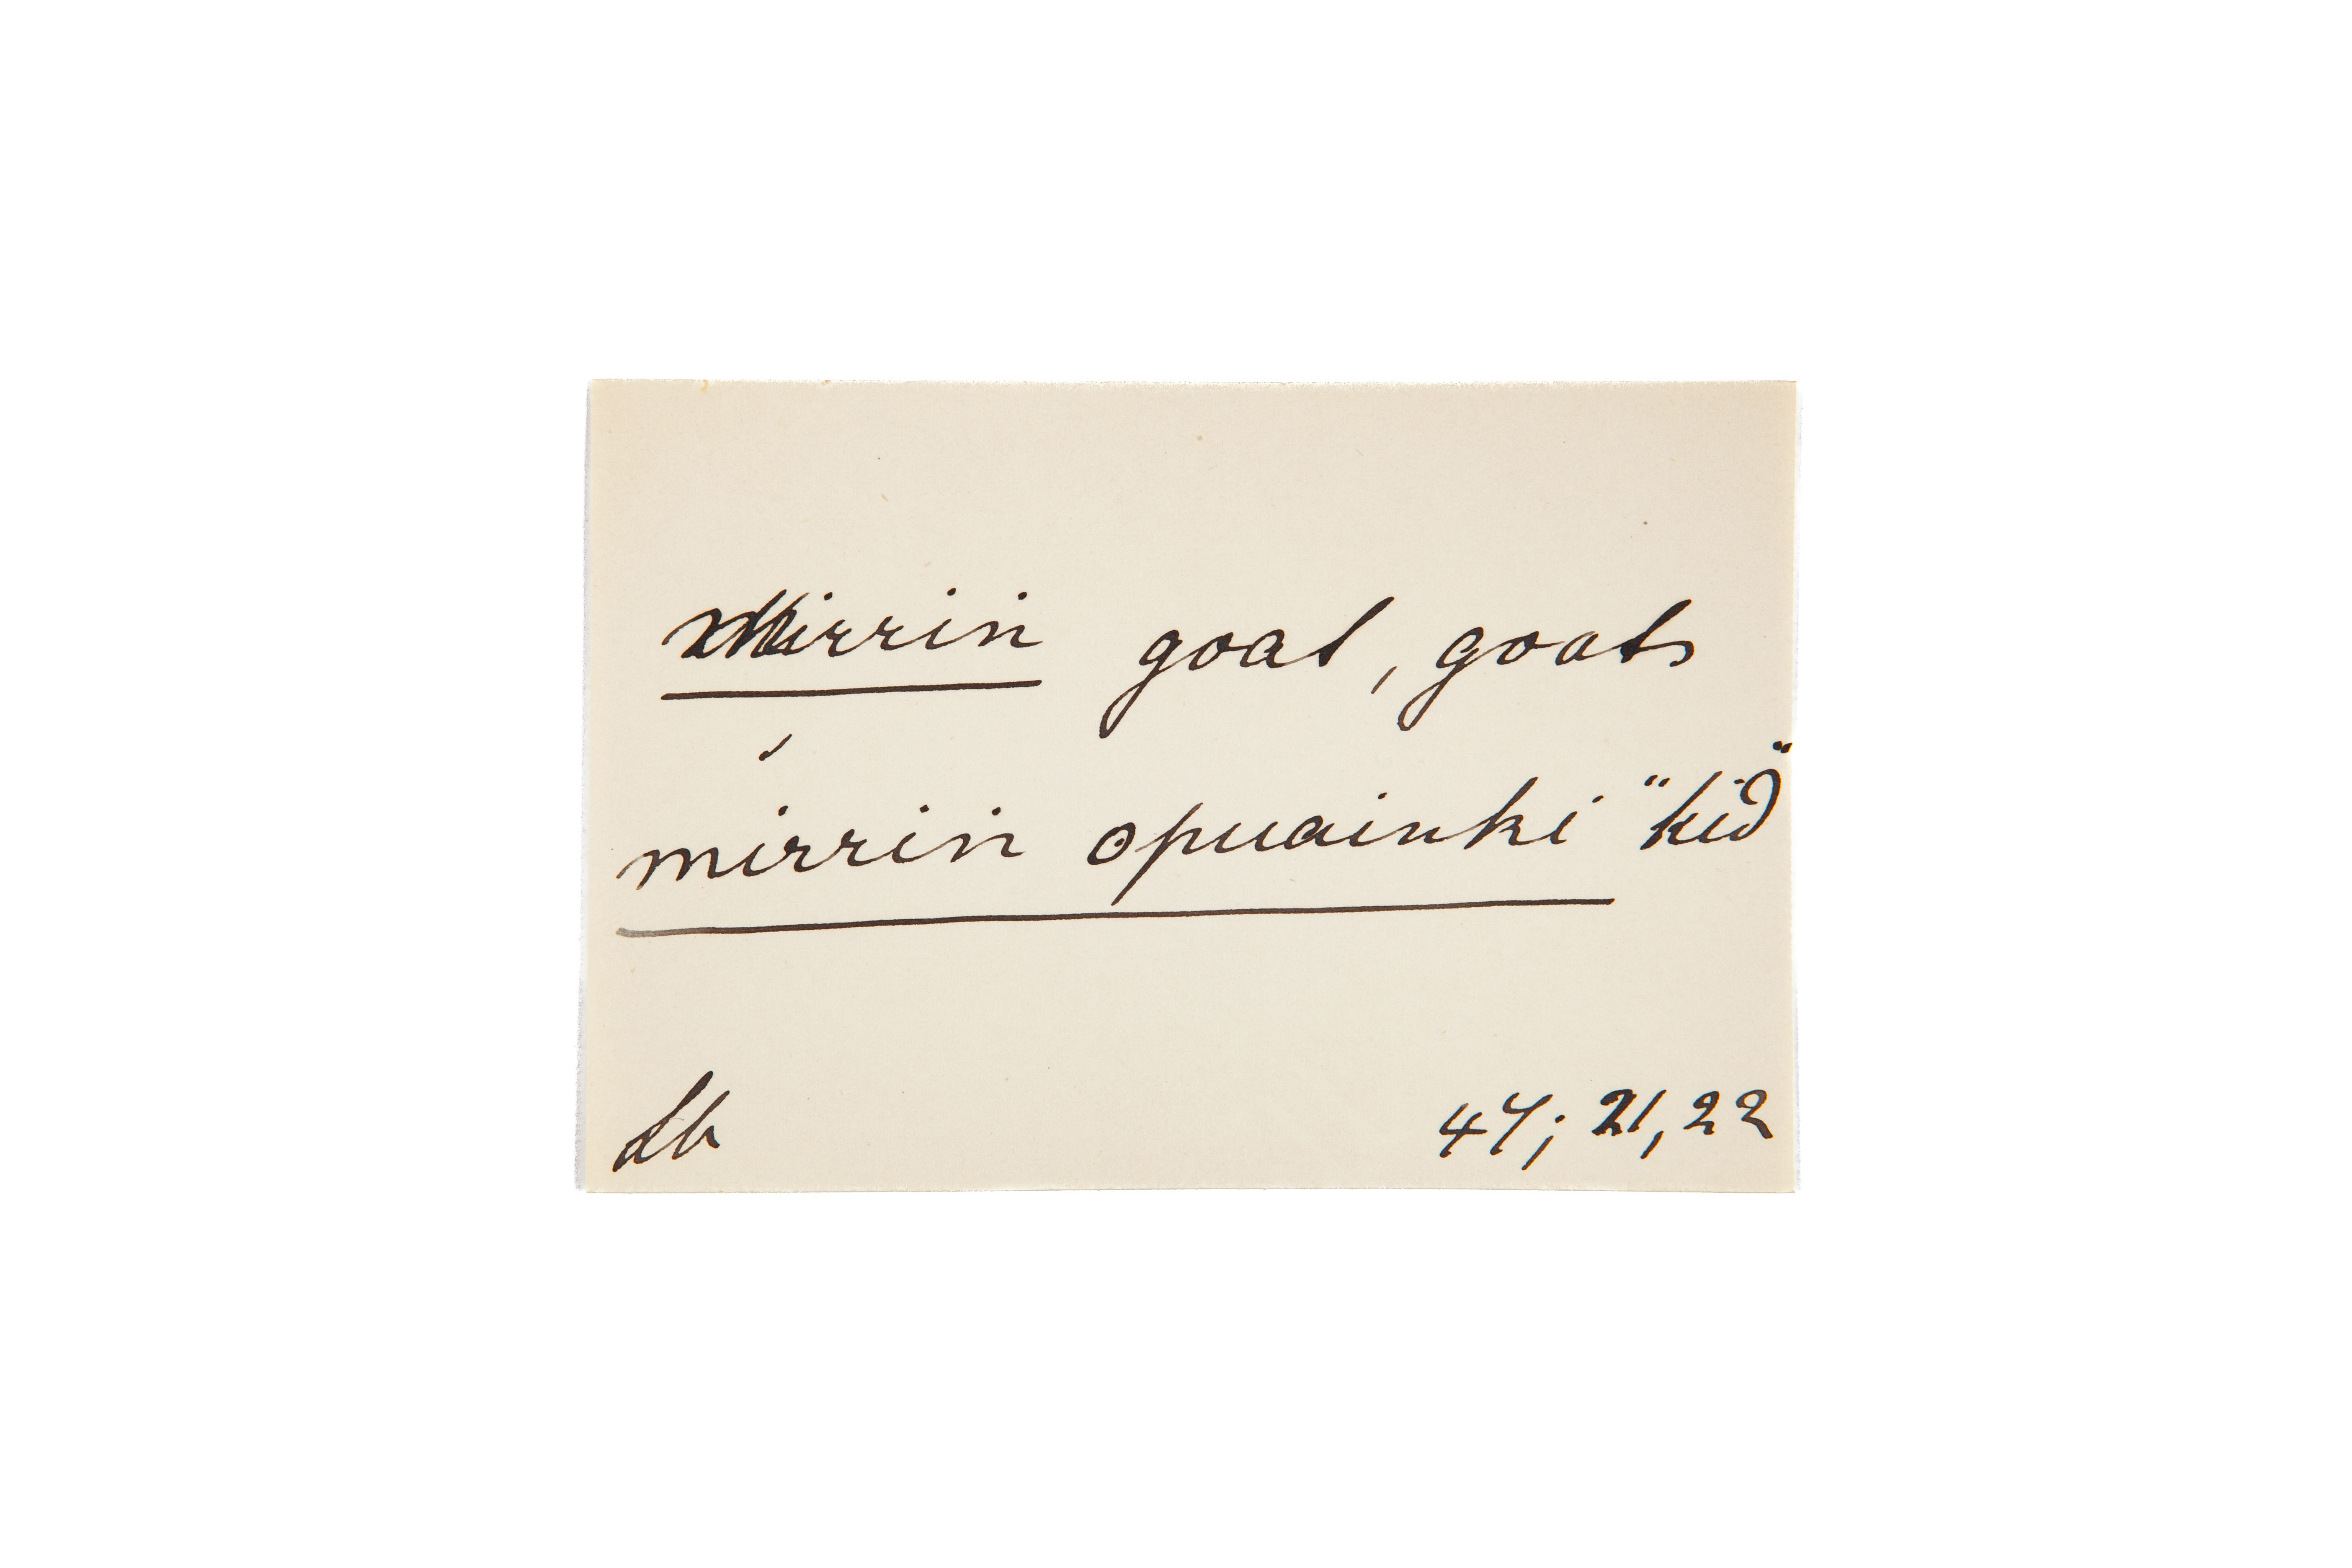 Mirrin goat, goats
mirrin opuainki "kid"
Lb 47; 21, 22